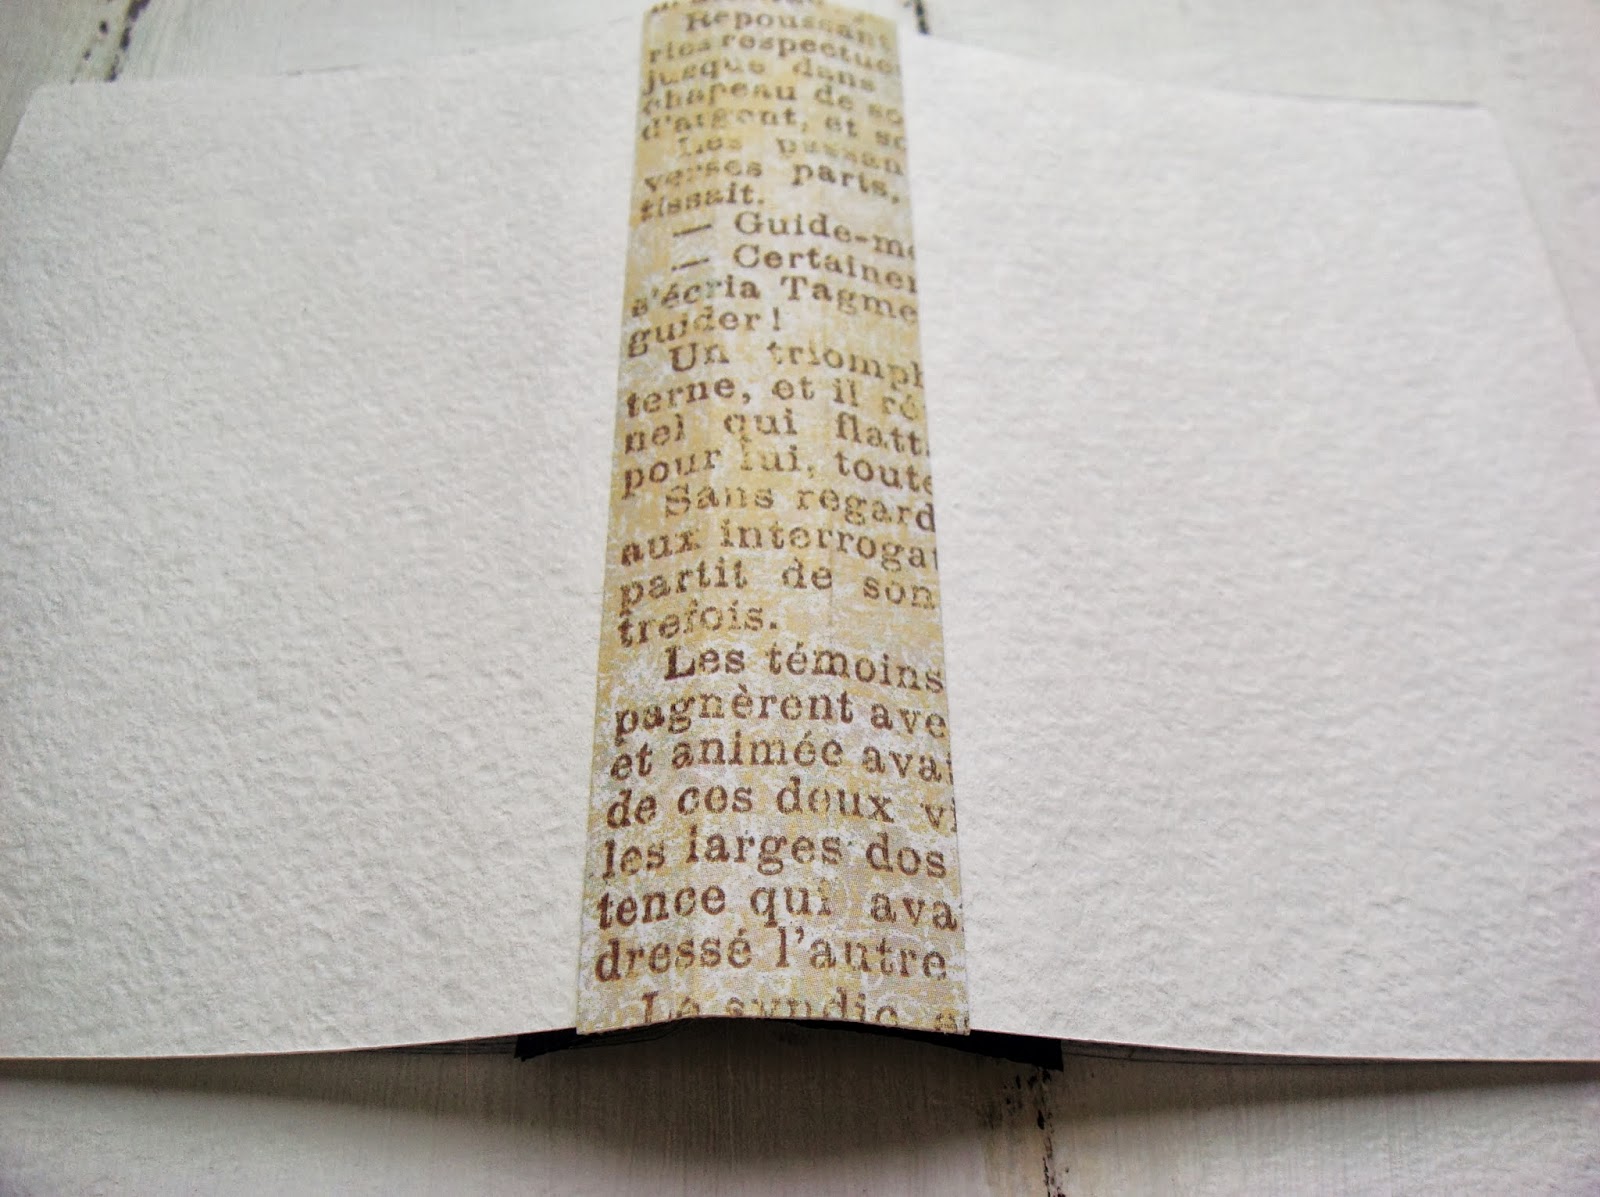 Repoussant
ries respectue
jusque dans
chapeau de so
d'argent, et so
Les passan
verses parts,
tissait.
— Guide-mo
— Certainem
s'écria Tagme
guider!
Un triomph
terne, et il ré
nel qui flatt
pour lui, toute
Sans regard
aux interrogat
partit de son
trefois.
Les témoins
pagnèrent ave
et animée avai
de ces deux vi
les larges dos
tence qui ava
dressé l'autre
Le syndic e